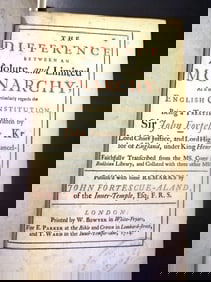 THE
DIFFERENCE
BETWEEN AN
solute and Limited
MONARCHY
As it
ticularly regards the
ENGLISH CONSTITUTION
Being a TREATISE
Written by
Sir John Fortescue, Kt
Lord Chief Justice, and Lord High
Chancel-
lor of ENGLAND, under King Henry
Faithfully Transcribed from the MS. Copy in the
Bodleian Library, and Collated with three other MSS
Publish'd with some REMARKS by
JOHN FORTESCUE-ALAND
of the Inner-Temple, Esq; F. R. S.
LONDON:
Printed by W. BOWYER in White-Fryars,
For E. PARKER at the Bible and Crown in Lombard-street,
and T. WARD in the Inner-Temple-lane, 1714.